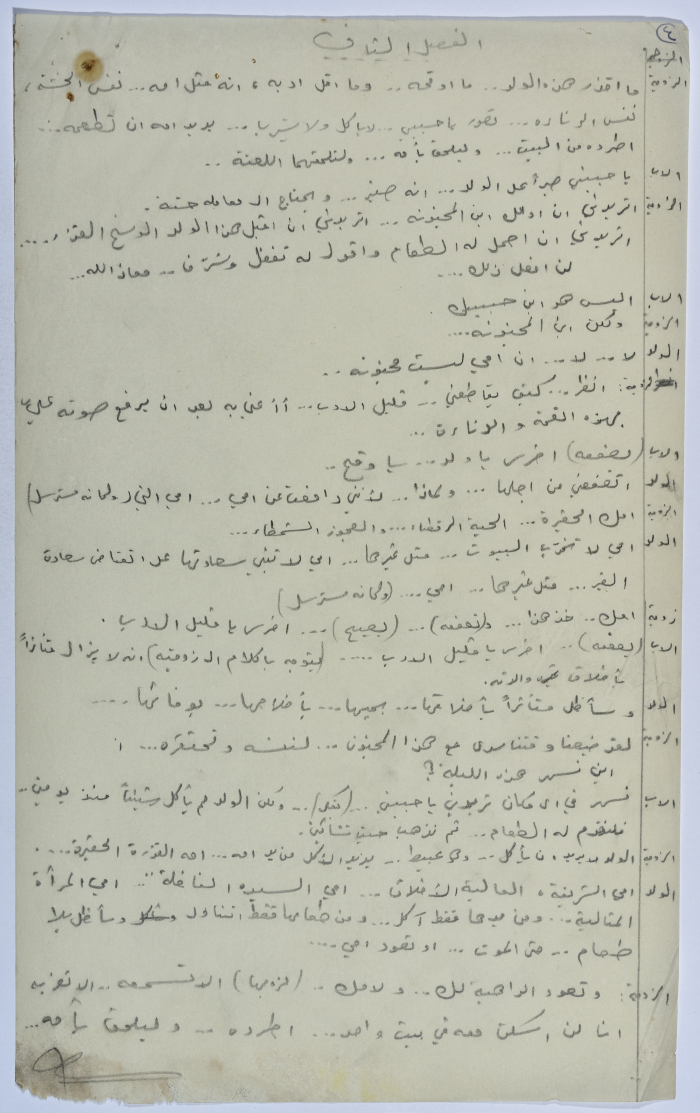 ٤
الفصل الثاني
الزوجة ما اقذر هذه الولد .. ما اوقحه .. وما اقل ادبه ، انه مثل امه ... نفس الخسة ،
نفس الدناءه ... تصور يا حبيبي .. لا ياكل ولا يشرب ... يريد امه ان تطعمه ...
اطرده من البيت ... وليلحق بأمه ... ولتلحقهما اللعنة ..
الاب يا حبيبتي صبراً على الولد ... انه صغير ... ويحتاج الى معامله حسنة .
الزوجة اتريدني ان ادلل ابن المجنونه ... اتريدني ان اقبل هذا الولد الوسخ القذر ....
اتريدني ان احمل له الطعام واقول له تفضل وشرف .. معاذ الله ...
لن افعل ذلك ....
الاب اليس هو ابن حبيبك
الزوجة ولكن ابن المجنونه ....
الولد لا .. لا ... ان امي ليست مجنونه ..
الزوجة : انظر ... كيف يقاطعني .. قليل الادب ... ان يرفع صوته علي
بهذه القحة والدناءة ...
الاب (يصفعه) اخرس يا ولد ... يا وقح ..
الولد اتصفعني من اجلها ... ولماذا .. لأنني دافعت عن امي ... امي التي (وكانه مسترسل)
الزوجة امك الحقيرة ... الحية الرقطاء ... والعجوز الشمطاء ...
الولد امي لا تخرب البيوت ... مثل غيرها ... امي لا تبني سعادتها على انقاض سعادة
الغير ... مثل غيرها ... امي .... (وكانه مسترسل)
زوجة امك .. خذ هذا ... (تصفعه) ... (يصيح) ... اخرس يا قليل الادب .
الاب (يصفعه) .. اخرس يا قليل الادب ..... (يتوجه بالكلام الى زوجته) انه لا يزال متأثراً
بأخلاق والدته .
الولد وسأظل متأثراً بأخلاقها ... بحبها ... بأخلاصها ... بوفائها ....
الزوجة لقد ضيعنا وقتنا سدى مع هذا المجنون ... لننسه ونحتقره ... :
اين نسهر هذه الليلة ؟
الاب نسهر في اي مكان تريدين يا حبيبتي .. ولكن الولد لم يأكل شيئاً منذ يومين ..
فلنقدم له الطعام ... ثم نذهب حيث تشائين .
الزوجة الولد لا يريد ان يأكل .. يريد الأكل من يد امه ... امه القذرة الحقيرة ....
الولد امي الشريفة ، العالية الأخلاق ... امي السيده الفاضلة ... امي المرأة
المثالية ... ومن يدها فقط آكل ... ومن طعامها فقط اتناول وسأظل بلا
طعام .. حتى الموت ... او تعود امي ....
الزوجة : وتعود الواهبة لك .. ولامك .. (لزوجها) الا تسمعه ..
انا لن اسكن معه في بيت واحد ... اطرده ... وليلحق بأمه ...